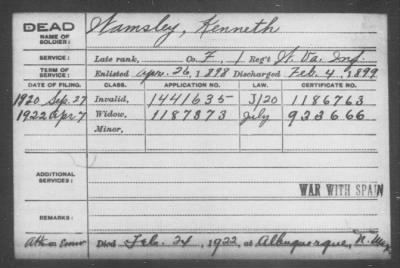 DEAD
NAME OF SOLDIER: Wamsley, Kenneth
SERVICE: Late rank, Co. F, 1 Reg't W. Va. Inf.
TERM OF SERVICE: Enlisted Apr. 26, 1898 Discharged Feb. 4, 1899
DATE OF FILING. CLASS. APPLICATION NO. LAW. CERTIFICATE NO.
1920 Sep. 27 Invalid, 1441635 J/20 1186763
1922 Apr 7 Widow, 1187373 July 923666
Minor,
ADDITIONAL SERVICES:
WAR WITH SPAIN
REMARKS:
Died Feb. 24, 1922, at Albuquerque, N. Mex.